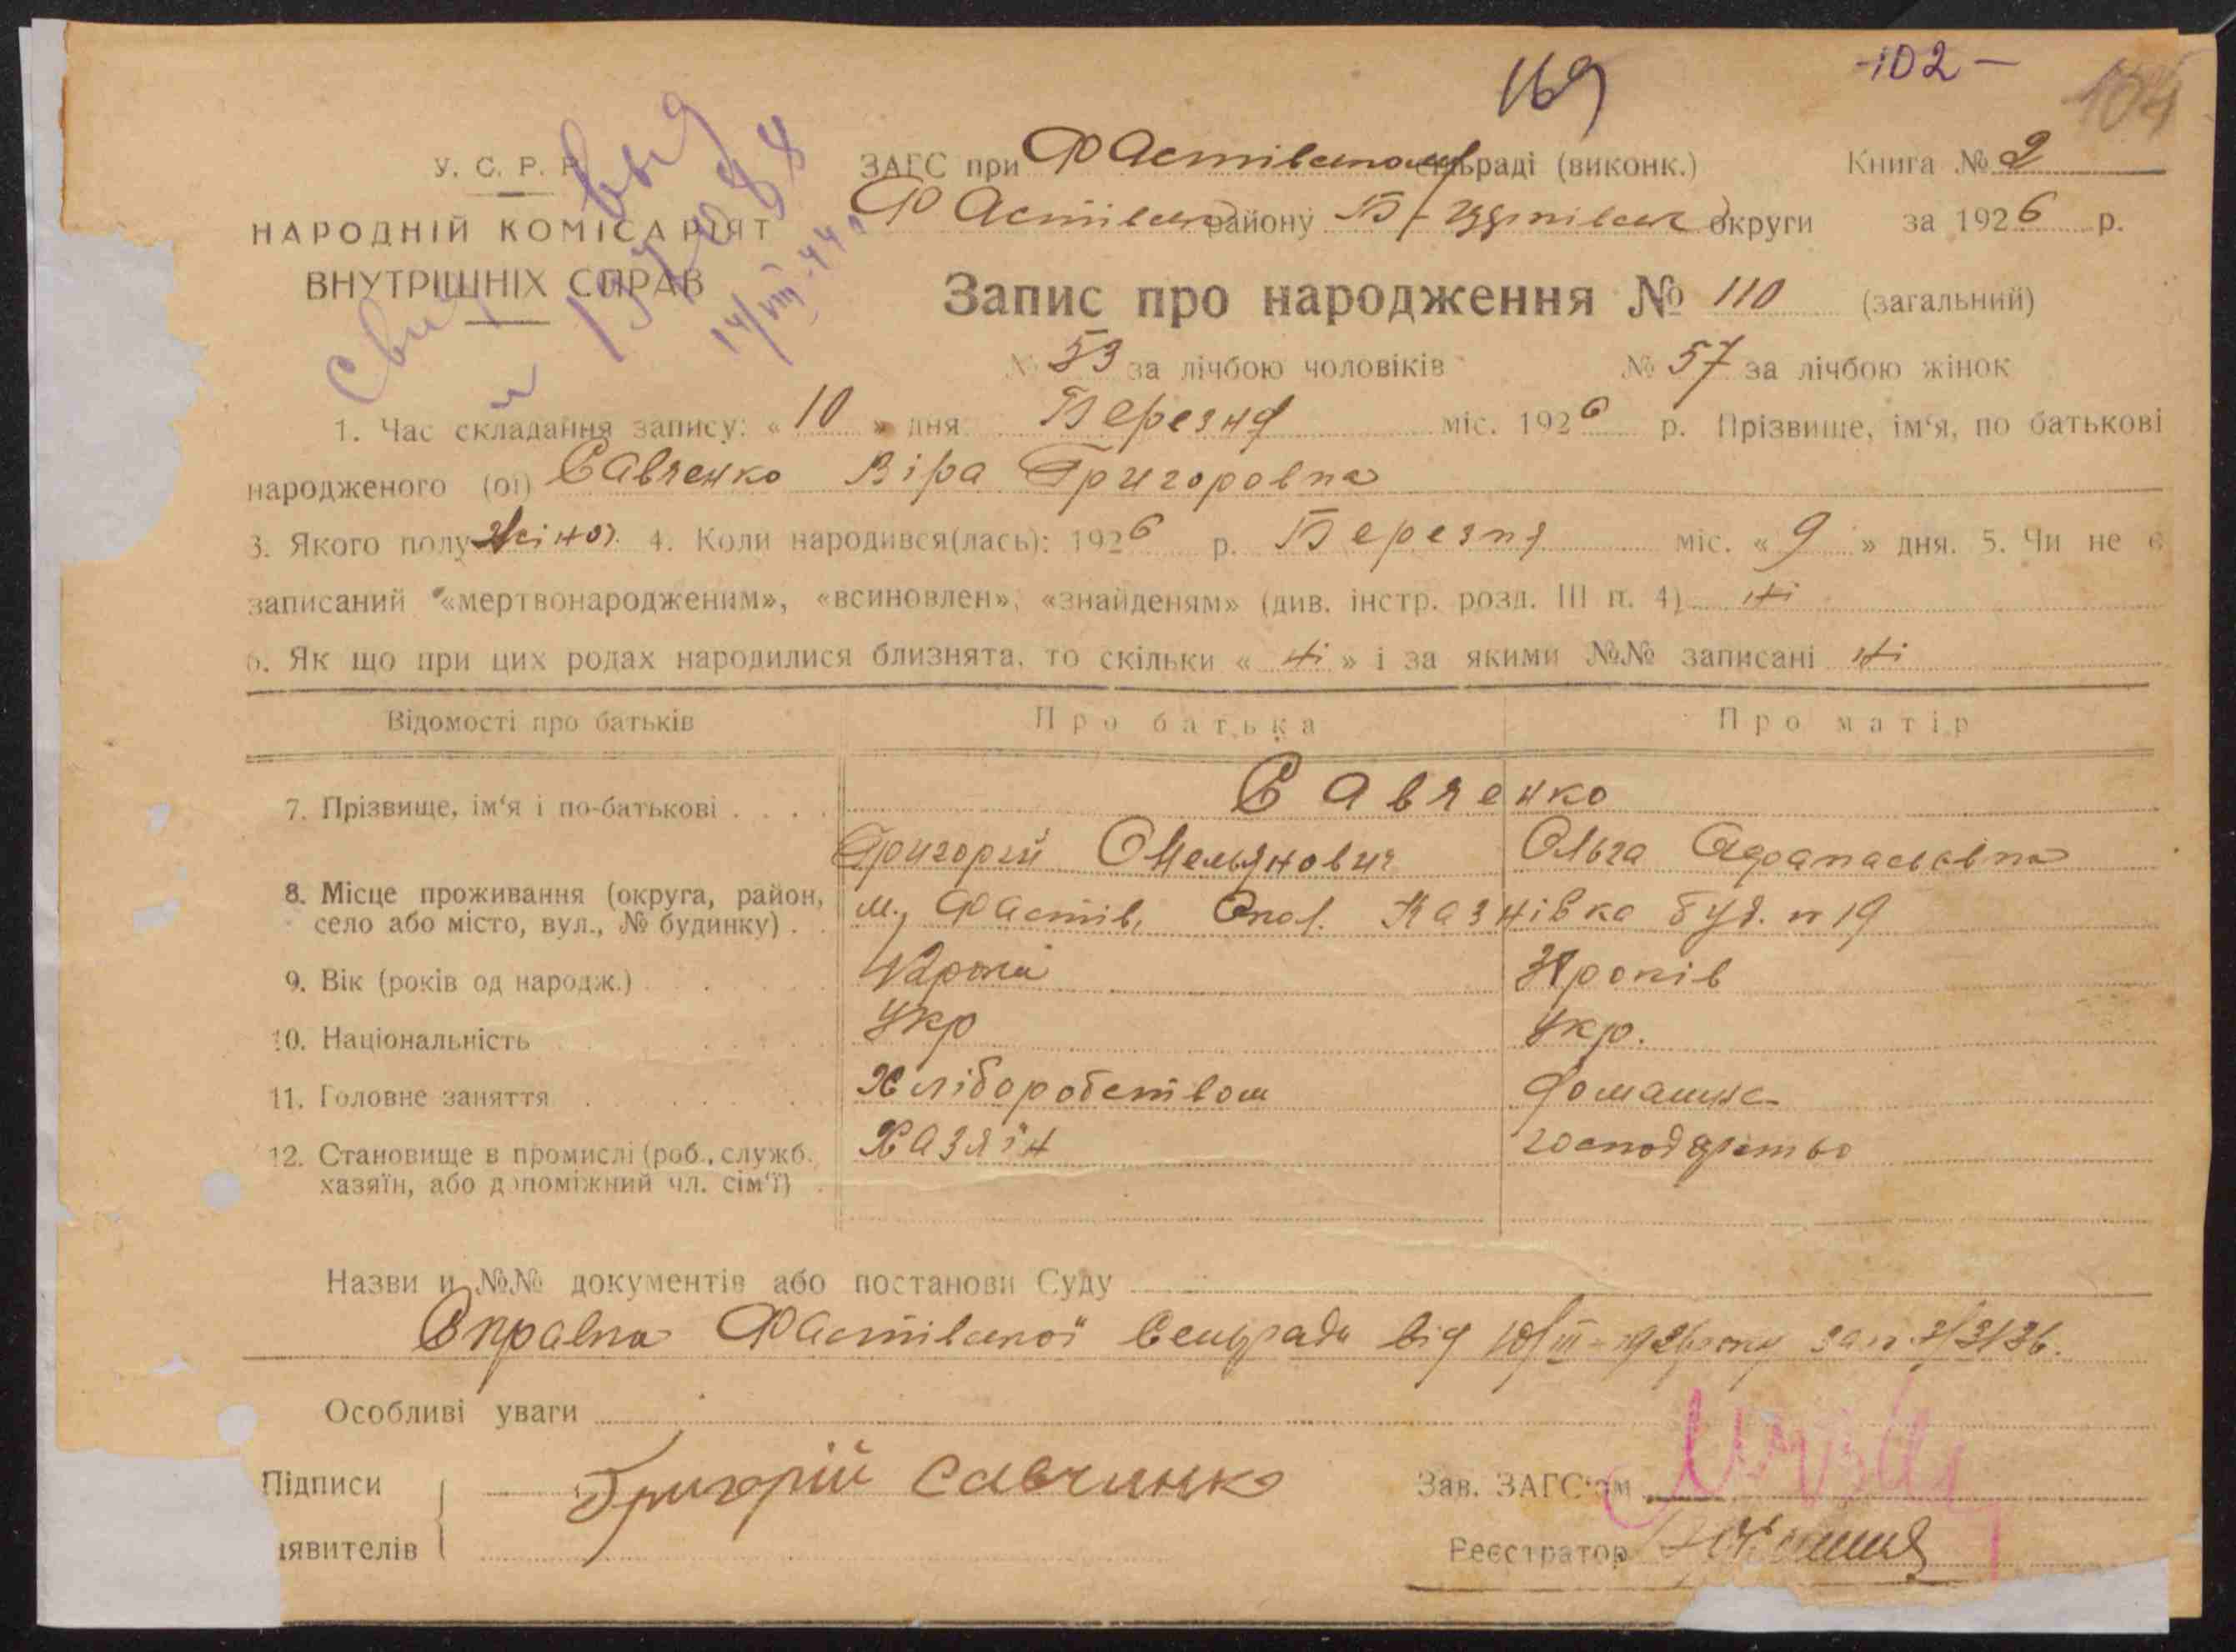 169
-102-
104
У. С. Р. Р.
НАРОДНІЙ КОМІСАРІЯТ
ВНУТРІШНІХ СПРАВ
14/VIII-44
ЗАГС при Фастівському сільраді (виконк.) Книга № 2
Фастівськ району Б-Церківськ округи за 1926 р.
Запис про народження № 110 (загальний)
№ 53 за лічбою чоловіків № 57 за лічбою жінок
1. Час складання запису: « 10 » дня Березня міс. 1926 р. Прізвище, ім‘я, по батькові
народженого (ої) Савченко Віра Григоровна
3. Якого полу жіноч. 4. Коли народився(лась): 1926 р. Березня міс. « 9 » дня. 5. Чи не є
записаний «мертвонародженим», «всиновлен», «знайденям» (див. інстр. розд. III п. 4) ні
6. Як що при цих родах народилися близнята, то скільки « ні » і за якими №№ записані ні
Відомості про батьків Про батька Про матір
7. Прізвище, ім‘я і по-батькові Савченко
Григорій Омельянович Ольга Афанасьевна
8. Місце проживання (округа, район,
село або місто, вул., № будинку) м. Фастів, Казнівка буд. № 19
9. Вік (років од народж.) 42 роки років
10. Національність Укр Укр.
11. Головне заняття Хліборобством Домашнє
12. Становище в промислі (роб., служб. Хазяїн господарство
хазяїн, або допоміжний чл. сім‘ї)
Назви и №№ документів або постанови Суду
Справка Фастівської Сельради від 10/III-1926 року за №
Особливі уваги
Підписи Григорій Савчинко Зав. ЗАГС‘ом
явителів Реєстратор